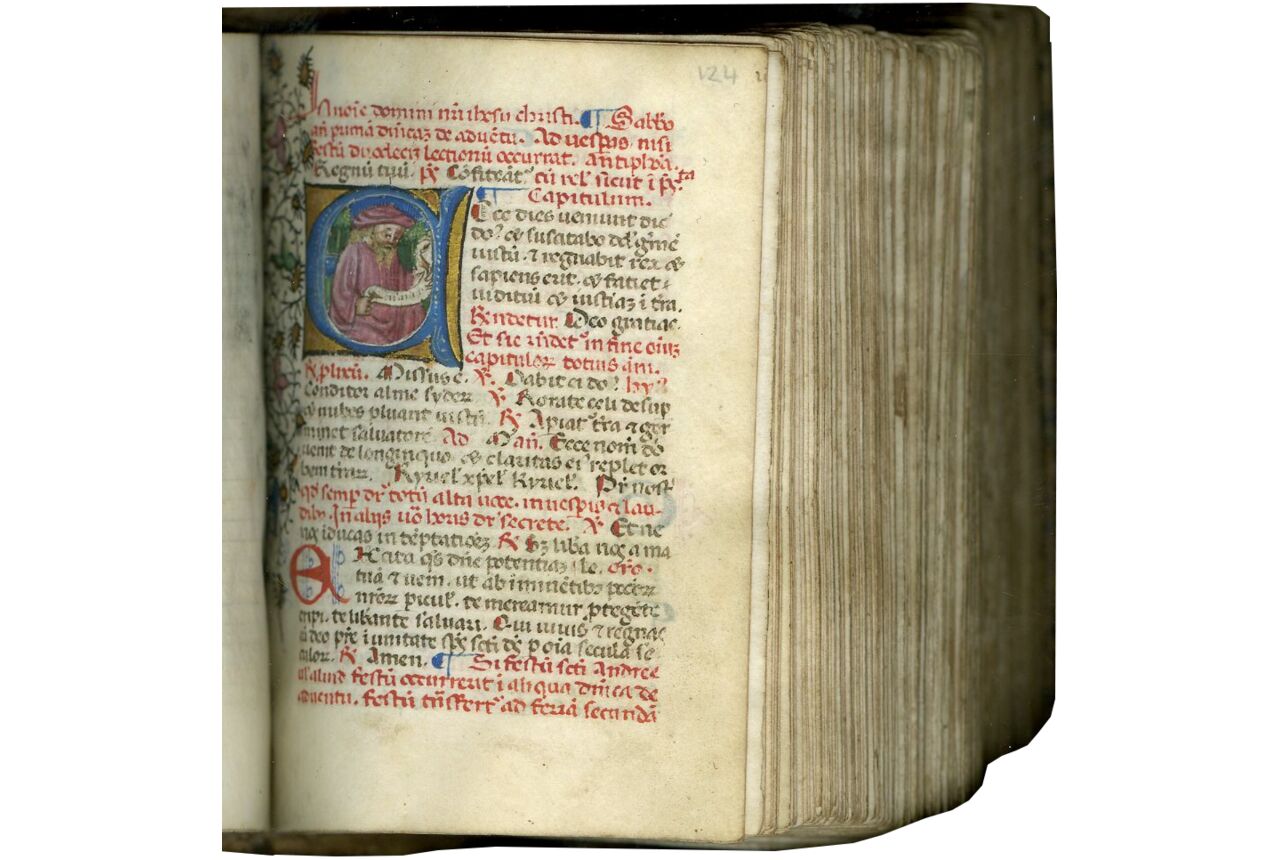 124
In noīe domini nr̄i ihesu christi. ¶ Sabb̄o
añ pumā dnīcaʒ de aduētu. Ad uesp̄is nisi
festū duodeciʒ lectionū occurrat. Antiph̄a.
Regnū tuū. ℞ Cōfiteāt᷑ cū rel᷑ sicut ī ps̄.ᵗᵃ
¶ Capitulum.
Ecce dies ueniunt dic̄
do᷑ et suscitabo dd᷑ g̃mē
iustū. ⁊ regnabit rex et
sapiens erit. et faciet
iuditiū et iustiāʒ ī t̃ra.
Rn̄detur Deo gratias.
Et sic rn̄det᷑ in fine oīuʒ
capituloꝝ totius añi.
℞ plixū. Missus ē. ℣. Dabit ei do᷑ hy᷑
Conditor alme syderꝝ ℣ Rorate celi desup
et nubes pluant iustū. ℞ Apiat᷑ t̃ra ⁊ ger
minet saluatorē. Ad Mañ. Ecce nom̄ dō
uenit de longinquo et claritas ei᷑ replet or
bem t̃raꝝ. Kyriel᷑ xp̄el᷑ kyriel᷑. Pr̄ nost᷑
qd̄ semp dr̄ totū alta uoce. in uesp̄is ⁊ lau-
dibꝰ. In alijs uō horis dr̄ secrete. ℣ Et ne
nos īducas in tēptatioēʒ ℞ Sʒ lib̃a nos a ma
Excita qs̄ dn̄e potentiāʒ lo. Oro.
tuā ⁊ ueni. ut ab iminētibꝰ peccꝝ
nr̄oꝝ picul᷑. te mereamur ꝓtegēte
eripi. te lib̃ante saluari. Qui uiuis ⁊ regnas
cū deo pr̄e ī unitate sp̄s sc̄ti dē᷑ p oīa secula se
culoꝝ. ℞ Amen. ¶ Si festū sc̄ti Andree
ul᷑ aliud festū occurrerit ī aliqua dnīca de
aduentu. festū tn̄sfert᷑ ad feriā secundā